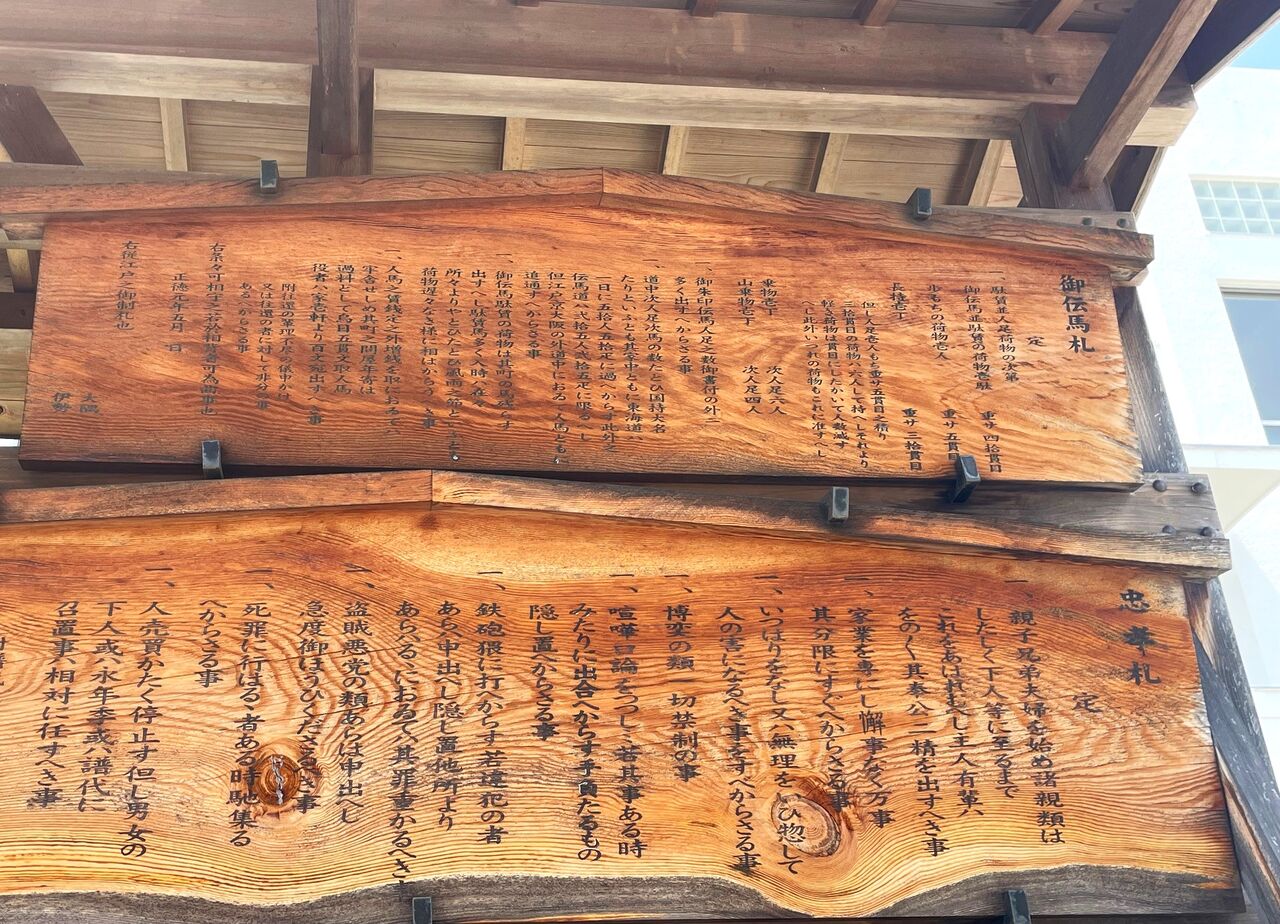 御伝馬札
定
一、駄賃並人足荷物の次第
御伝馬並駄賃の荷物壱駄 重サ四拾貫目
歩もちの荷物壱人 重サ五貫目
長持壱丁 重サ三拾貫目
但し人足壱人もち重サ五貫目之積り
三拾貫目の荷物ハ六人して持へしそれより
軽き荷物は貫目にしたかいて人数減す
へし此外いつれの荷物もこれに准すへし
乗物壱丁 次人足六人
山乗物壱丁 次人足四人
一、御朱印伝馬人足之数御書付の外ニ
多く出すへからさる事
一、道中次人足次馬の数たとひ国持大名
たりといふとも其家中ともに東海道ハ
一日に五拾人五拾疋に過へからす此外之
伝馬道ハ弐拾五人弐拾五疋に限るへし
但江戸京大阪の外道中におゐて人馬ともに
追通すへからさる事
一、御伝馬駄賃の荷物は其町の馬残らす
出すへし駄賃馬多く入時ハ在々
所々よりやとひたとひ風雨之節といふとも
荷物遅々なき様に相はからうへき事
一、人馬之賃銭定之外増銭を取におゐてハ
牢舎せしめ其町之問屋年寄は
過料として鳥目五貫文取人馬
役者ハ家壱軒より百文宛出すへき事
附往還の輩理不尽の儀申かけ
又は往還の者に対して非分の事
あるへからさる事
右条々可相守之若於相背者可為曲事也
正徳元年五月 日
右従江戸之御制札也
大隅
伊勢
忠孝札
定
一、親子兄弟夫婦を始め諸親類は
したしく下人等に至るまで
これをあはれむへし主人有輩ハ
をのくく其奉公ニ精を出すへき事
一、家業を専にし懈事なく万事
其分限にすくへからさる事
一、いつはりをなし又ハ無理をいひ惣して
人の害になるへき事をすへからさる事
一、博奕の類一切禁制の事
一、喧嘩口論をつつしミ若其事ある時
みたりに出合へからす手負たるもの
隠し置へからさる事
一、鉄砲猥に打へからす若違犯の者
あらハ申出へし隠し置他所より
あらハるゝにおゐてハ其罪重かるへき事
一、盗賊悪党の類あらは申出へし
急度御ほうひくださるへき事
一、死罪に行はるゝ者ある時馳集る
へからさる事
一、人売買かたく停止す但し男女の
下人或ハ永年季或ハ譜代に
召置事ハ相対に任すへき事